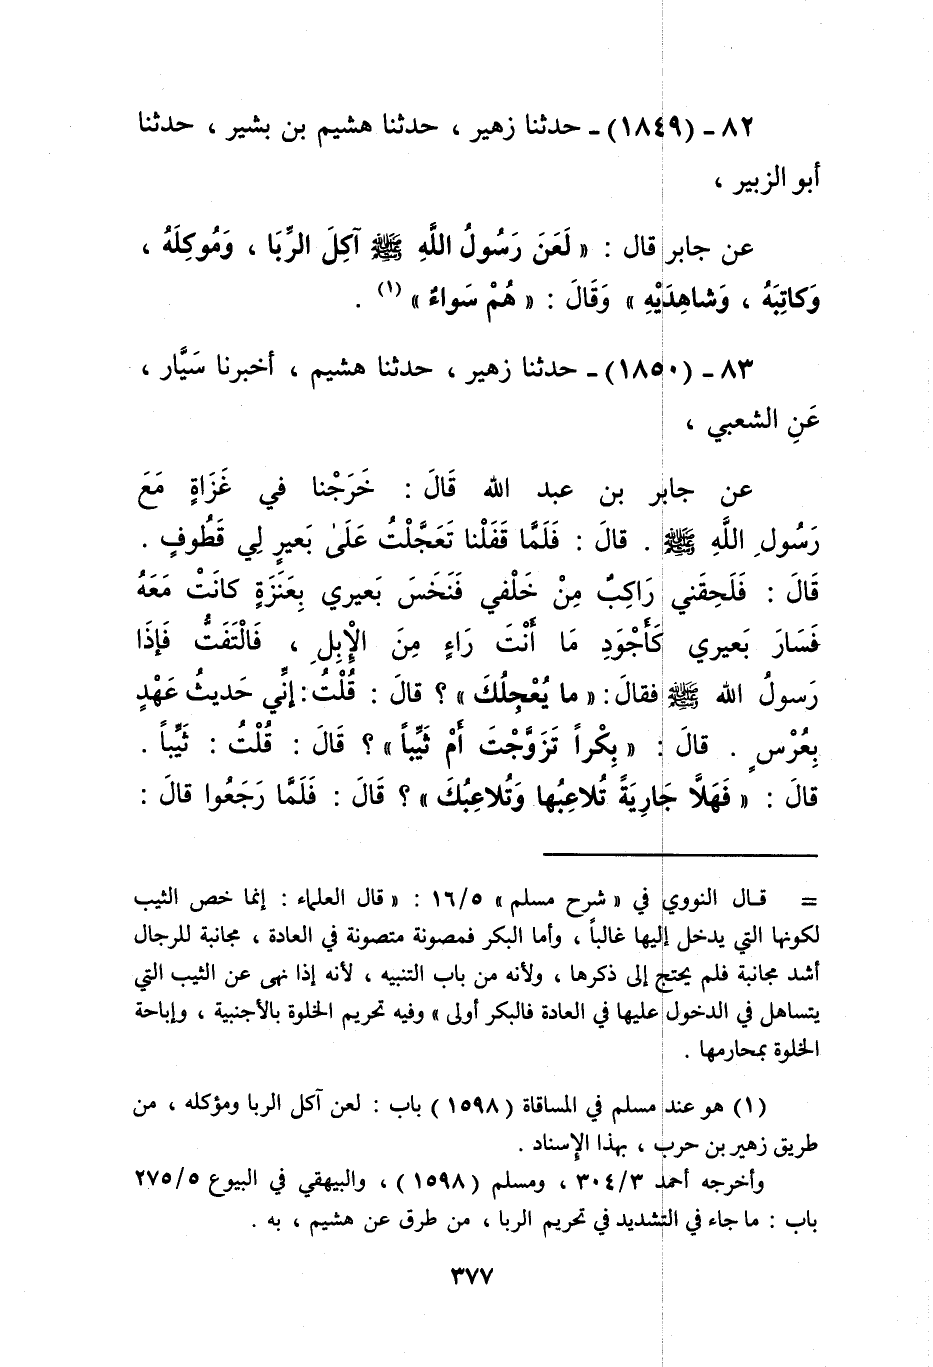 ٨٢ - (١٨٤٩) - حدثنا زهير ، حدثنا هشيم بن بشير ، حدثنا
أبو الزبير ،
عن جابر قال : « لَعَنَ رَسُولُ اللَّهِ ﷺ آكِلَ الرِّبَا ، وَمُوكِلَهُ ،
وَكاتِبَهُ ، وَشاهِدَيْهِ » وَقَالَ : « هُمْ سَواءٌ » (١) .
٨٣ - (١٨٥٠) - حدثنا زهير ، حدثنا هشيم ، أخبرنا سَيَّار ،
عَنِ الشعبي ،
عن جابر بن عبد الله قَالَ : خَرَجْنا في غَزَاةٍ مَعَ
رَسُولِ اللَّهِ ﷺ . قالَ : فَلَمَّا قَفَلْنا تَعَجَّلْتُ عَلَىٰ بَعيرٍ لِي قَطُوفٍ .
قَالَ : فَلَحِقَني رَاكِبٌ مِنْ خَلْفي فَنَخَسَ بَعيري بِعَنَزَةٍ كانَتْ مَعَهُ
فَسَارَ بَعيري كَأَجْوَدِ مَا أَنْتَ رَاءٍ مِنَ الْإِبِلِ ، فَالْتَفَتُّ فَإِذَا
رَسولُ الله ﷺ فقالَ : « ما يُعْجِلُكَ » ؟ قالَ : قُلْتُ : إنِّي حَديثُ عَهْدٍ
بِعُرْسٍ . قالَ : « بِكْراً تَزَوَّجْتَ أَمْ ثَيِّباً » ؟ قَالَ : قُلْتُ : ثَيِّباً .
قالَ : « فَهَلَّا جَارِيَةً تُلاعِبُها وَتُلاعِبُكَ » ؟ قَالَ : فَلَمَّا رَجَعُوا قالَ :
= قـال النووي في « شرح مسلم » ١٦/٥ : « قال العلماء : إنما خص الثيب
لكونها التي يدخل إليها غالباً ، وأما البكر فمصونة متصونة في العادة ، مجانبة للرجال
أشد مجانبة فلم يحتج إلى ذكرها ، ولأنه من باب التنبيه ، لأنه إذا نهى عن الثيب التي
يتساهل في الدخول عليها في العادة فالبكر أولى » وفيه تحريم الخلوة بالأجنبية ، وإباحة
الخلوة بمحارمها .
(١) هو عند مسلم في المساقاة (١٥٩٨) باب : لعن آكل الربا ومؤكله ، من
طريق زهير بن حرب ، بهذا الإسناد .
وأخرجه أحمد ٣٠٤/٣ ، ومسلم (١٥٩٨) ، والبيهقي في البيوع ٢٧٥/٥
باب : ما جاء في التشديد في تحريم الربا ، من طرق عن هشيم ، به .
٣٧٧